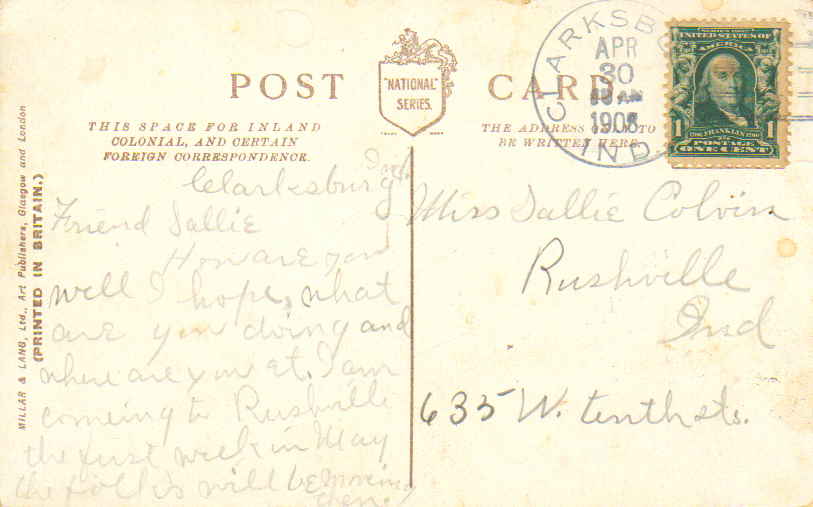 POST CARD
"NATIONAL"
SERIES.
TRADE MARK
THIS SPACE FOR INLAND
COLONIAL, AND CERTAIN
FOREIGN CORRESPONDENCE.
THE ADDRESS ONLY TO
BE WRITTEN HERE.
CLARKSBURG
APR
30
AM
1908
IND.
SERIES 1902
UNITED STATES OF
AMERICA
1 FRANKLIN 1
POSTAGE
ONE CENT
MILLAR & LANG, Ltd., Art Publishers, Glasgow and London
(PRINTED IN BRITAIN.)
Clarksburg Ind.
Friend Sallie
How are you
well I hope, what
are you doing and
where are you at. I am
comeing to Rushville
the first week in May
the folks will be moveing
then.
Miss Sallie Colvin
Rushville
Ind
635 W. tenth sts.